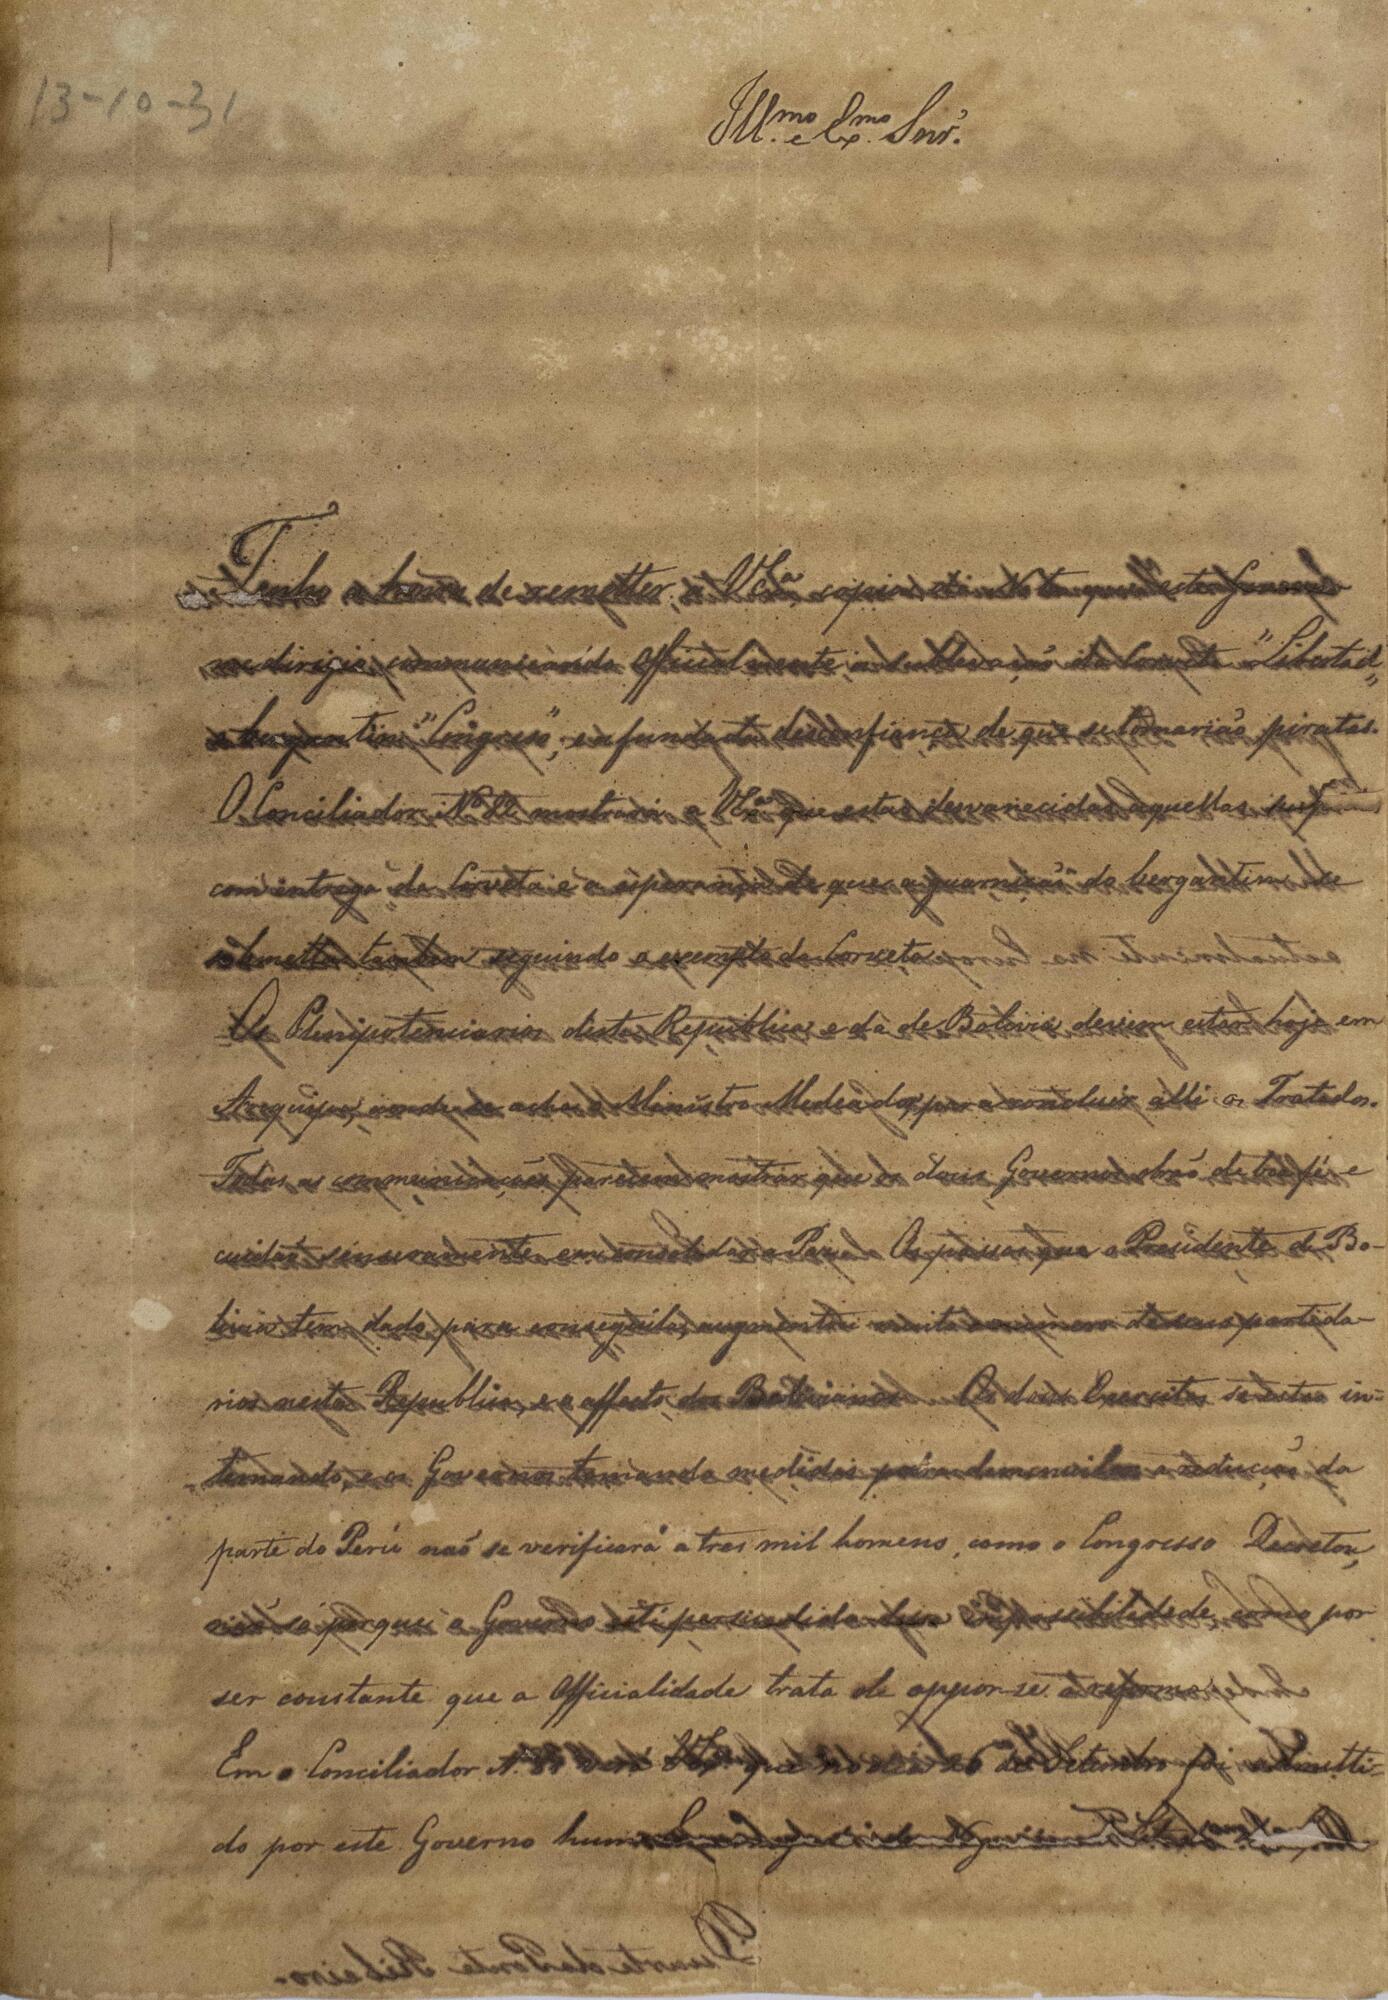 13-10-31
Ill.mo e Ex.mo Snr.
Tenho a honra de remetter a V Ex.a copia da Nota que este Governo
me dirigio communicando officialmente a sublevação da Corveta "Libertad"
e bergantim "Congreso", e a fundada desconfiança de que se tornarião piratas.
O Conciliador N.º 82 mostrará a V Ex.a que estão desvanecidas aquellas
com entrega da Corveta e a esperança de que a guarnição do bergantim se
submetta tambem seguindo o exemplo da Corveta.
Os Plenipotenciarios desta Republica e da de Bolivia devem estar hoje em
Arequipa, aonde se acha o Ministro Mediador, para concluir alli os Tratados.
Todas as communicações parecem mostrar que os dous Governos obrão de boa fé e
cuidão sinceramente em consolidar a Paz. Os passos que o Presidente de Bo-
livia tem dado para conseguila, augmentou muito o numero de seus partida-
rios nesta Republica, e o affecto dos Bolivianos. Os dous Exercitos se estão in-
ternando, e os Governos tomando medidas para a reducção da
parte do Perú não se verificará a tres mil homens, como o Congresso Decretou,
não só porque o Governo está persuadido da impossibilidade, como por
ser constante que a Officialidade trata de oppor-se á reforma.
Em o Conciliador N. verá V Ex.a que no dia 26 de Setembro foi admitti-
do por este Governo hum
Duarte da Ponte Ribeiro.